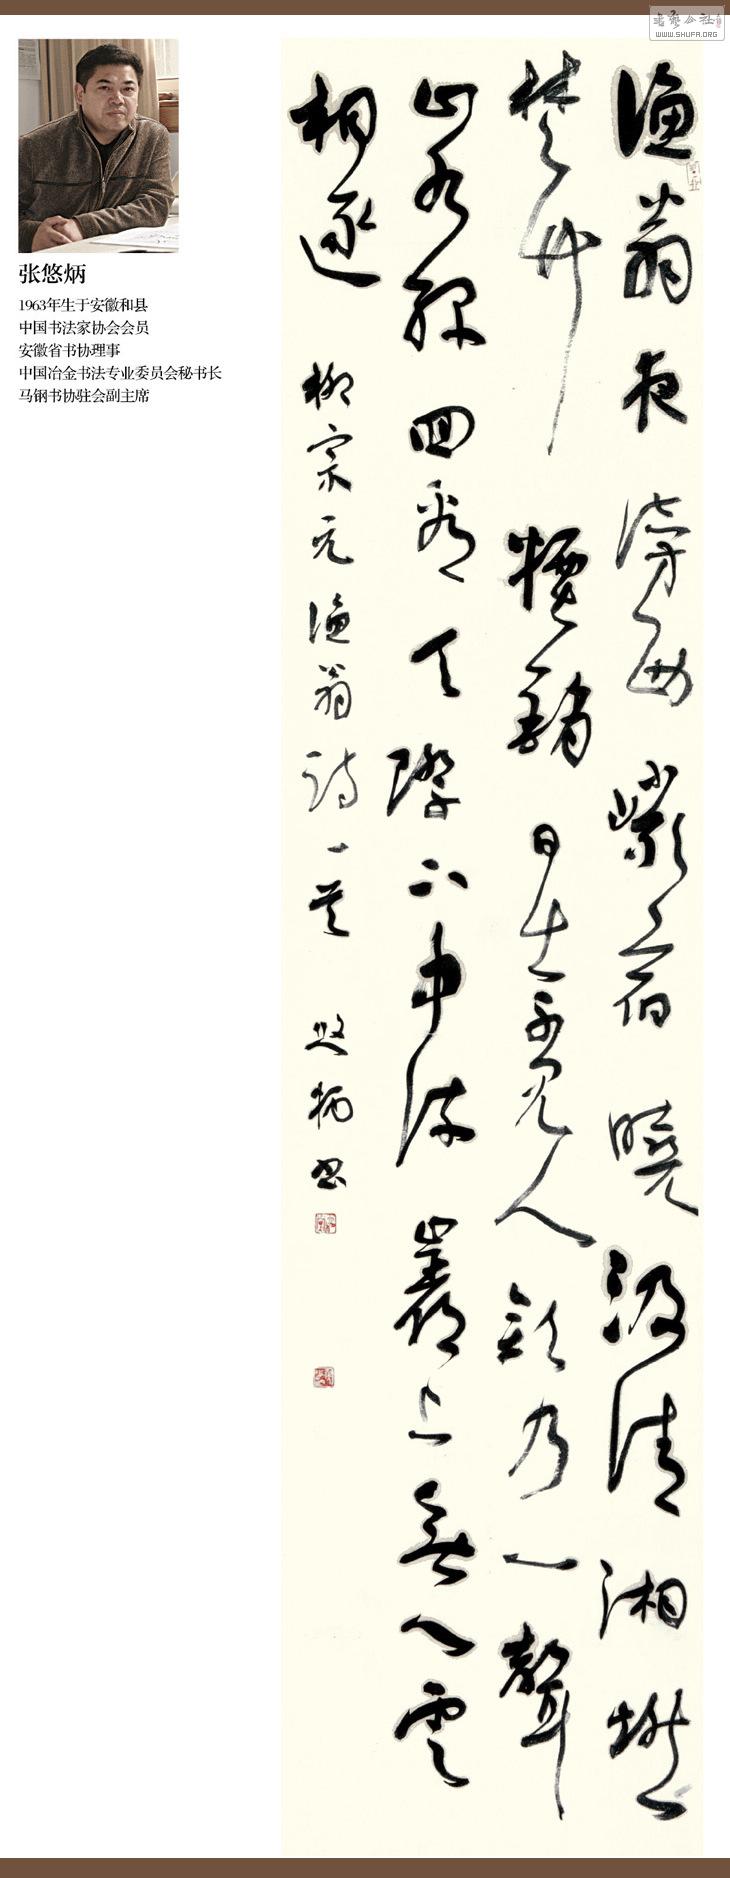 书艺公社
WWW.SHUFA.ORG
张悠炳
1963年生于安徽和县
中国书法家协会会员
安徽省书协理事
中国冶金书法专业委员会秘书长
马钢书协驻会副主席
漁翁夜傍西巖宿曉汲清湘燃
楚竹煙銷日出不見人欸乃一聲
山水綠回看天際下中流巖上無心雲
相逐 柳宗元漁翁詩一首 悠炳書